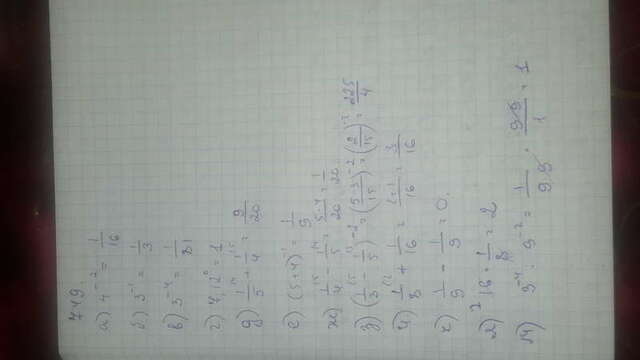 749
а) 4⁻² = 1/16
б) 3⁻¹ = 1/3
в) 3⁻⁴ = 1/81
г) 7,12⁰ = 1
д) 1/5 + 1/4 = 9/20
е) (5+4)⁻¹ = 1/9
ж) 1/4 - 1/5 = 5-4/20 = 1/20
з) (1/3 - 1/5)⁻² = (5-3/15)⁻² = (2/15)⁻² = 225/4
и) 1/8 + 1/16 = 2+1/16 = 3/16
к) 1/9 - 1/9 = 0.
л) 16 · 1/8 = 2
м) : 9⁻² = 1/9·9 · 9·9/1 = 1